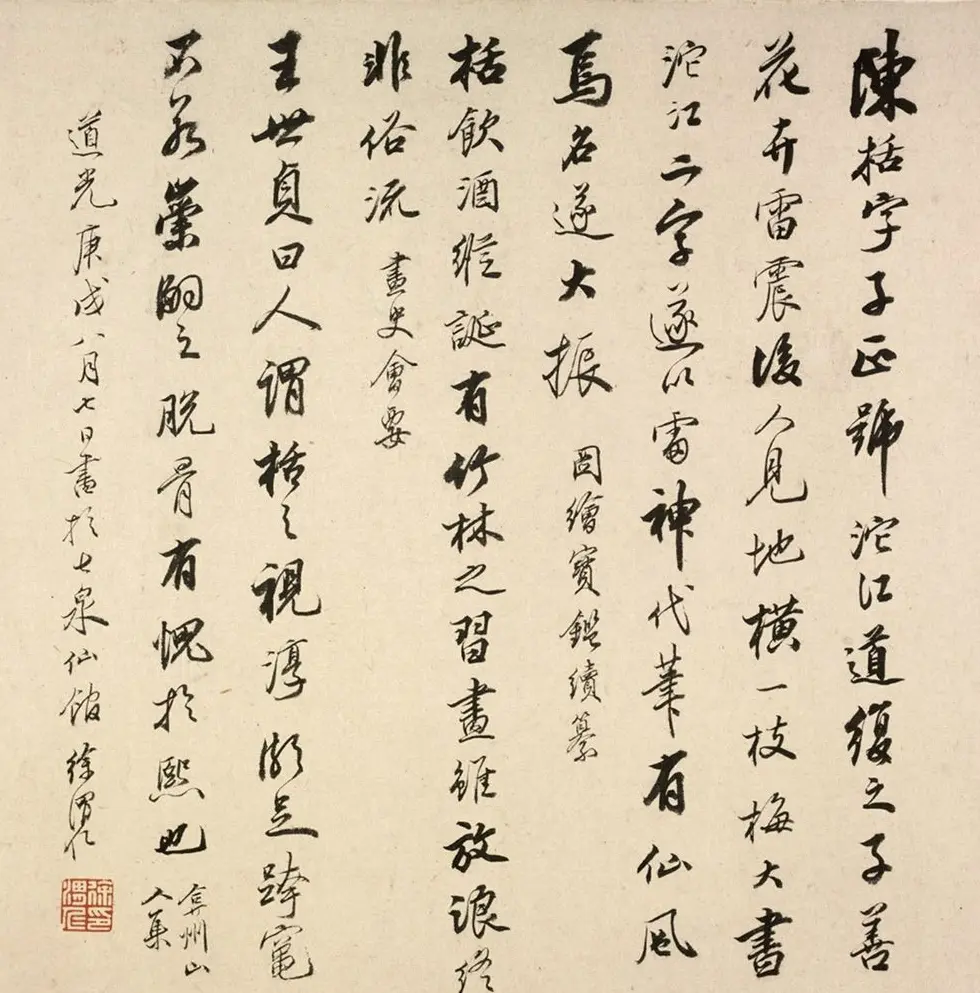 陳栝字子正號沱江道復之子善
花卉雷震後人見地橫一枝梅大書
沱江二字遂以雷神代筆有仙風
焉名遂大振 圖繪寶鑑續纂
栝飲酒縱誕有竹林之習畫雖放浪終
非俗流 畫史會要
王世貞曰人謂栝之視淳頗足跨竈
不若崇嗣之脫骨有愧於熙也 弇州山
人集
道光庚戌八月七日書於泉仙館 徐渭仁
徐印渭仁